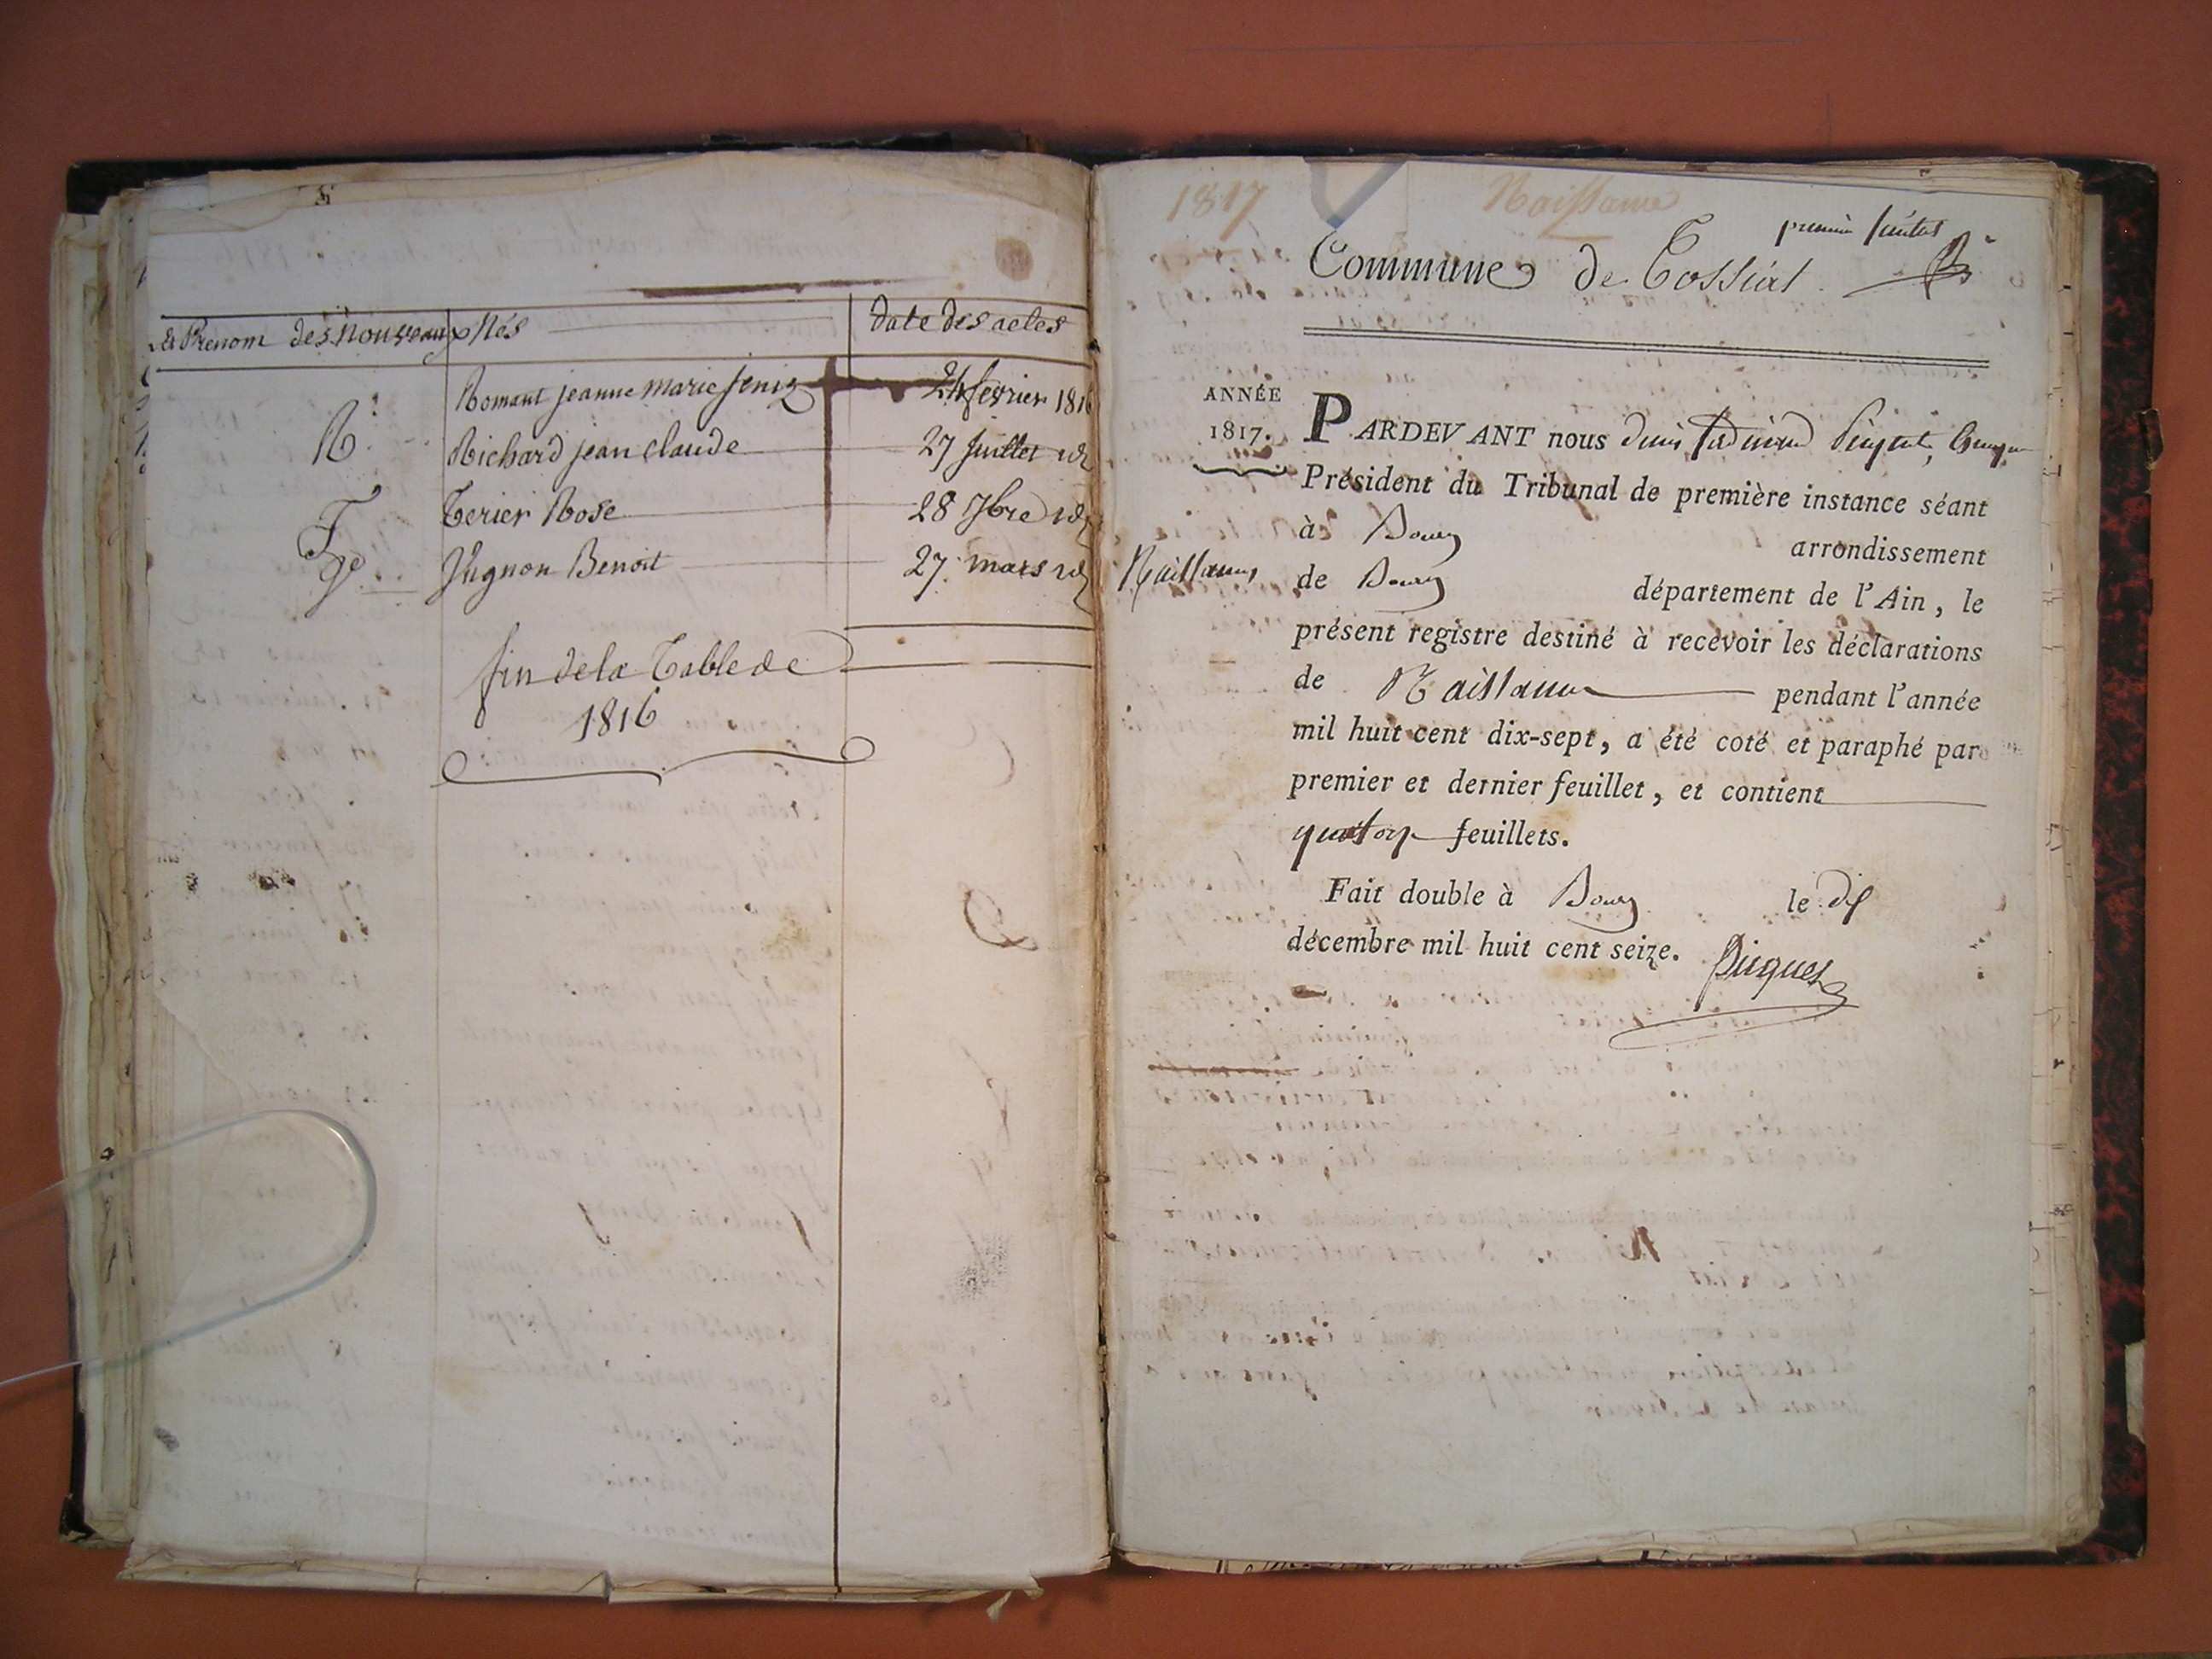 & Prenom des Nouveaux Nés
date des actes
Romant jeanne marie feniz 24 fevrier 1816
R. Richard jean claude 27 Juillet id
T Terier Rose 28 7bre id
V Vugnon Benoit 27 mars id
fin de la Table de
1816
1817 Naissance
premier feuillet
Commune de Tossiat
ANNÉE
1817.
PARDEVANT nous
Président du Tribunal de première instance séant
à Bourg arrondissement
Naissances
de Bourg département de l'Ain, le
présent registre destiné à recevoir les déclarations
de Naissance pendant l'année
mil huit cent dix-sept, a été coté et paraphé par
premier et dernier feuillet, et contient
quatorze feuillets.
Fait double à Bourg le dix
décembre mil huit cent seize.
Picquet